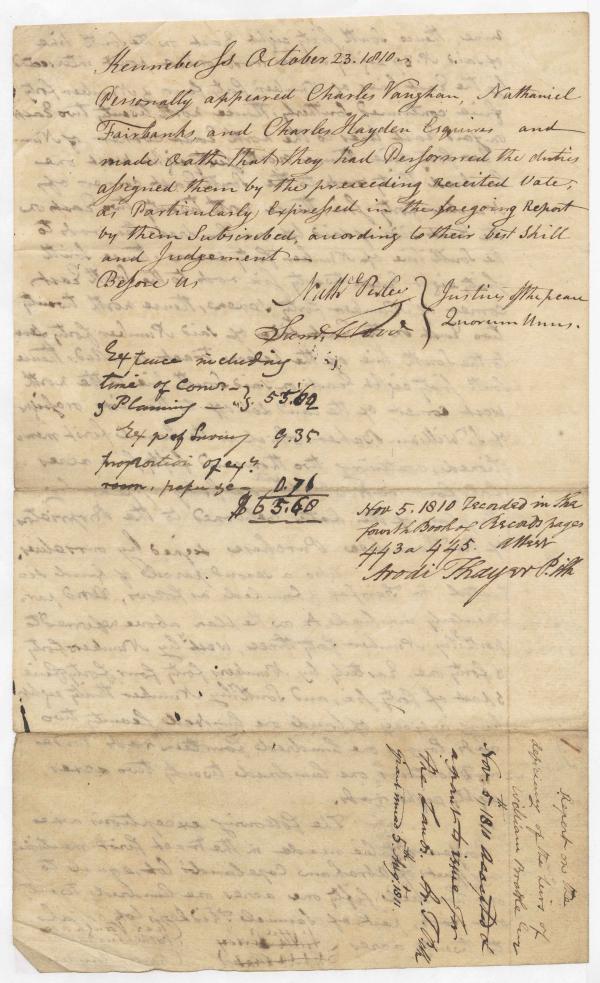 Kennebec Ss October 23. 1810
Personally appeared Charles Vaughan, Nathaniel
Fairbanks, and Charles Hayden Esquires and
made Oath that they had Performed the duties
assigned them by the preceeding recited Vote,
as Particularly Expressed in the foregoing Report
by them Subscribed, according to their best Skill
and Judgement
Before Us
Justices of the peace
Quorum Unus.
including
time of
& Planning 55.62
Exp of Survey 9.35
proportion of exp.s
room, paper &c 0.71
$65.68
Nov 5. 1810 recorded in the
fourth Book of Records pages
443 a 445. attest
Arodi Thayer P. Clk
Report on the
deficiency of the heirs of
William
Nov. 5th 1810 accepted &
a grant to issue for
the Lands.
grant issued 5th Augt 1811.